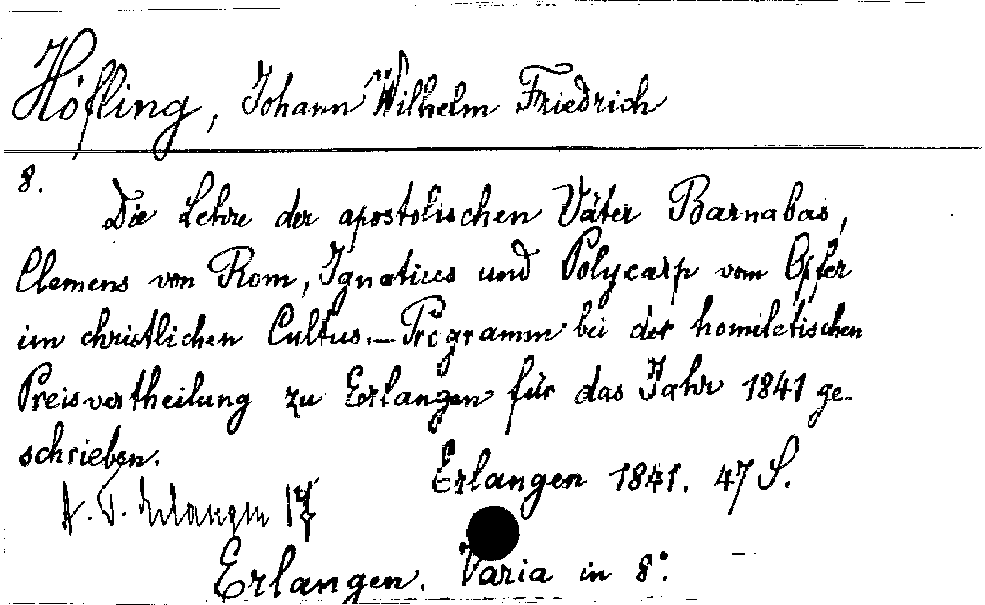 Höfling, Johann Wilhelm Friedrich
8.
Die Lehre der apostolischen Väter Barnabas,
Clemens von Rom, Ignatius und Polycarp vom Opfer
im christlichen Cultus. — Programm bei der homiletischen
Preisvertheilung zu Erlangen für das Jahr 1841 ge-
schrieben.
Erlangen 1841. 47 S.
Erlangen 17
Erlangen. Varia in 8°.